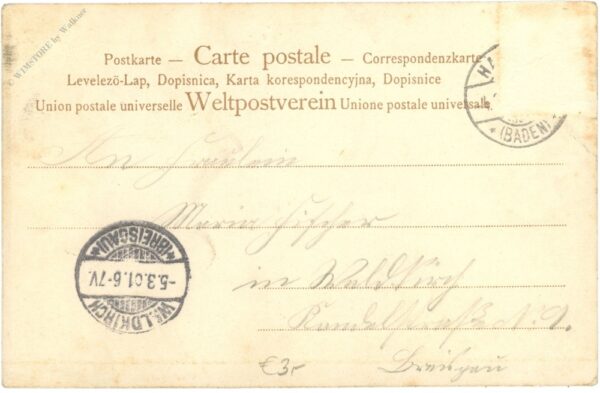 © WIMSTORE by Walkner
Postkarte — Carte postale — Correspondenzkarte
Levelező-Lap, Dopisnica, Karta korespondencyjna, Dopisnice
Union postale universelle Weltpostverein Unione postale universale
HA
* (BADEN) *
An Fräulein
Maria Fischer
in Waldkirch
Kandelstraße
Breisgau
*(BREISGAU)*
-5.3.01.6-7V.
WALDKIRCH
€3,-